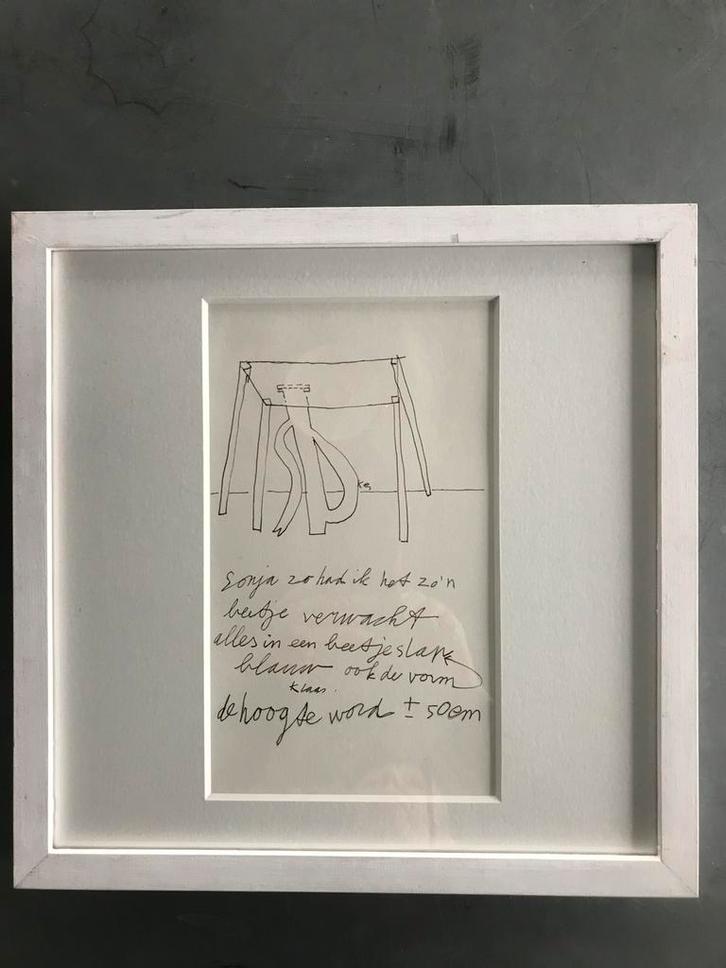 KG
Sonja zo had ik het zo'n
beetje verwacht
alles in een beetje slap
blauw ook de vorm
Klaas.
de hoogte word ± 50 cm